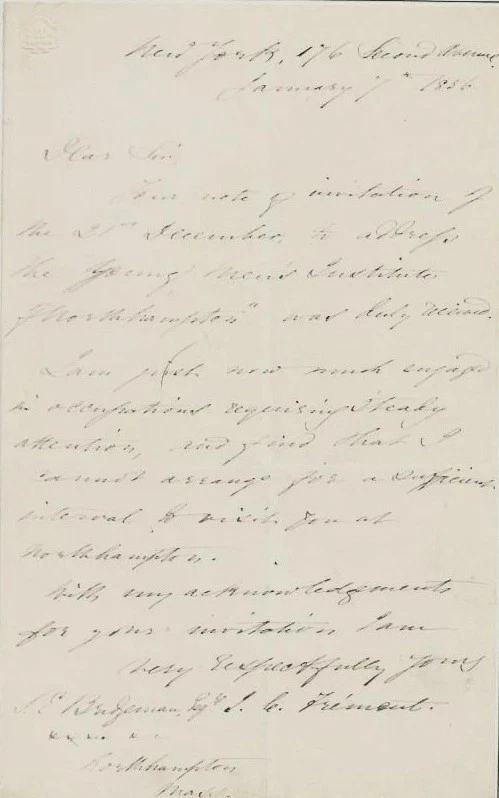 New York, 176 Second Avenue,
January 7th 1856.
Dear Sir
Your note of invitation of
the 21st December, to address
the "Young Men's Institute
of Northhampton" was duly received.
I am just now much engaged
in occupations requiring steady
attention, and find that I
cannot arrange for a sufficient
interval to visit you at
Northhampton.
With my acknowledgments
for your invitation I am
Very respectfully yours
J. C. Frémont.
Bridgeman, Esqre
Northhampton
Mass.